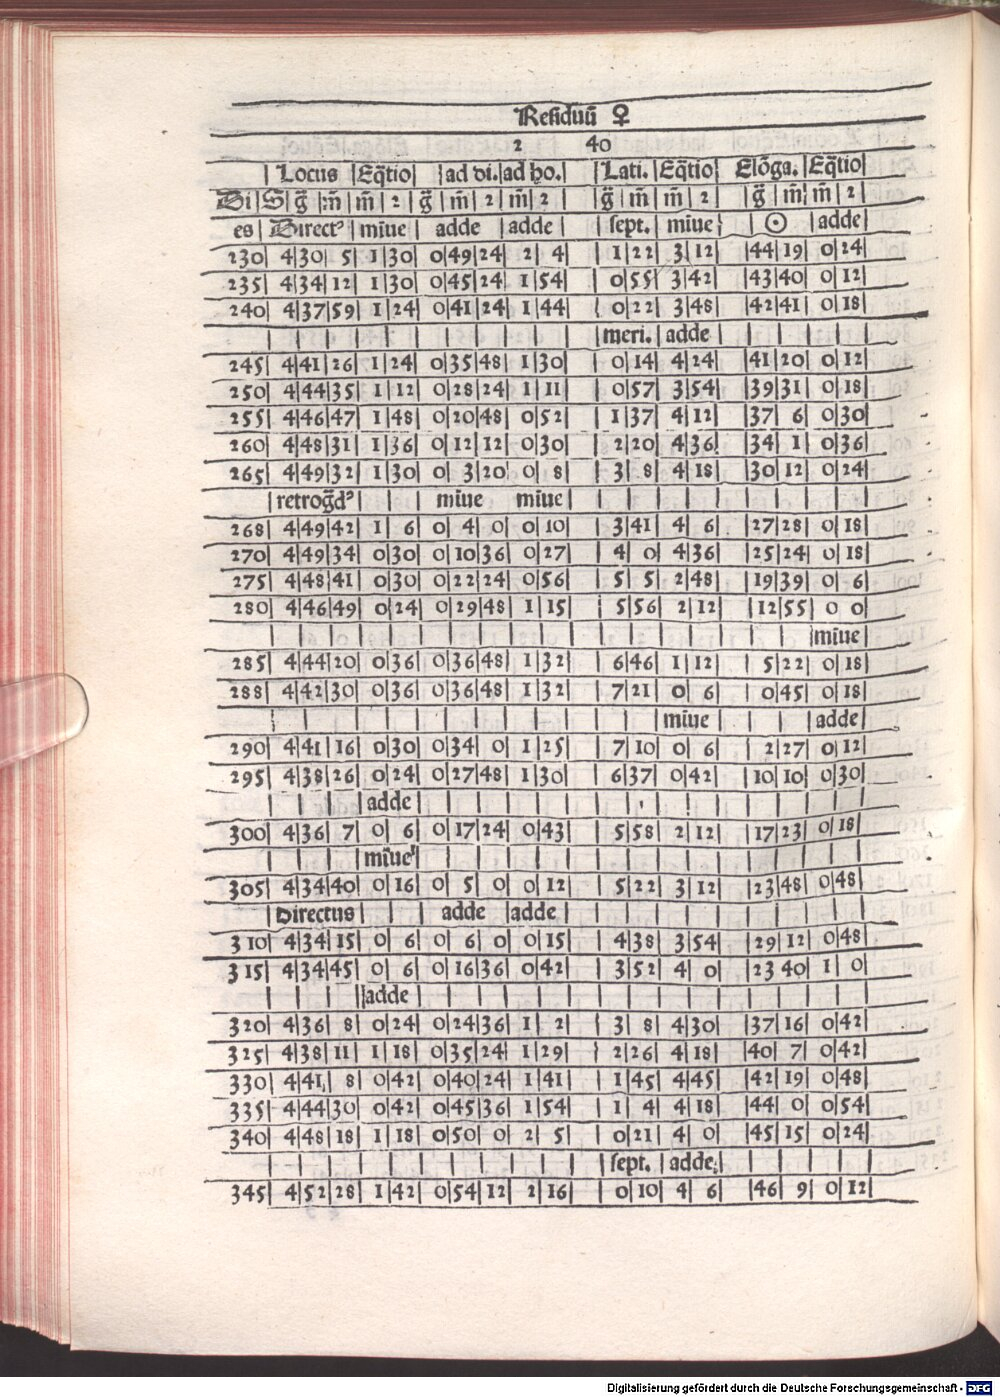 Residuũ ♀
2 40
Locus | Eq̃tio | ad di. | ad ho. | Lati. | Eq̃tio | Elõga. | Eq̃tio
Di | S | g̃ | m̃ | m̃ | 2 | g̃ | m̃ | 2 | m̃ | 2 | g̃ | m̃ | m̃ | 2 | g̃ | m̃ | m̃ | 2
es | Direct⁹ | miue | adde | adde | sept. | miue | ☉ | adde
230 | 4 | 30 | 5 | 1 | 30 | 0 | 49 | 24 | 2 | 4 | 1 | 22 | 3 | 12 | 44 | 19 | 0 | 24
235 | 4 | 34 | 12 | 1 | 30 | 0 | 45 | 24 | 1 | 54 | 0 | 55 | 3 | 42 | 43 | 40 | 0 | 12
240 | 4 | 37 | 59 | 1 | 24 | 0 | 41 | 24 | 1 | 44 | 0 | 22 | 3 | 48 | 42 | 41 | 0 | 18
meri. | adde
245 | 4 | 41 | 26 | 1 | 24 | 0 | 35 | 48 | 1 | 30 | 0 | 14 | 4 | 24 | 41 | 20 | 0 | 12
250 | 4 | 44 | 35 | 1 | 12 | 0 | 28 | 24 | 1 | 11 | 0 | 57 | 3 | 54 | 39 | 31 | 0 | 18
255 | 4 | 46 | 47 | 1 | 48 | 0 | 20 | 48 | 0 | 52 | 1 | 37 | 4 | 12 | 37 | 6 | 0 | 30
260 | 4 | 48 | 31 | 1 | 36 | 0 | 12 | 12 | 0 | 30 | 2 | 20 | 4 | 36 | 34 | 1 | 0 | 36
265 | 4 | 49 | 32 | 1 | 30 | 0 | 3 | 20 | 0 | 8 | 3 | 8 | 4 | 18 | 30 | 12 | 0 | 24
retrog̃d⁹ | miue | miue
268 | 4 | 49 | 42 | 1 | 6 | 0 | 4 | 0 | 0 | 10 | 3 | 41 | 4 | 6 | 27 | 28 | 0 | 18
270 | 4 | 49 | 34 | 0 | 30 | 0 | 10 | 36 | 0 | 27 | 4 | 0 | 4 | 36 | 25 | 24 | 0 | 18
275 | 4 | 48 | 41 | 0 | 30 | 0 | 22 | 24 | 0 | 56 | 5 | 5 | 2 | 48 | 19 | 39 | 0 | 6
280 | 4 | 46 | 49 | 0 | 24 | 0 | 29 | 48 | 1 | 15 | 5 | 56 | 2 | 12 | 12 | 55 | 0 | 0
miue
285 | 4 | 44 | 20 | 0 | 36 | 0 | 36 | 48 | 1 | 32 | 6 | 46 | 1 | 12 | 5 | 22 | 0 | 18
288 | 4 | 42 | 30 | 0 | 36 | 0 | 36 | 48 | 1 | 32 | 7 | 21 | 0 | 6 | 0 | 45 | 0 | 18
miue | adde
290 | 4 | 41 | 16 | 0 | 30 | 0 | 34 | 0 | 1 | 25 | 7 | 10 | 0 | 6 | 2 | 27 | 0 | 12
295 | 4 | 38 | 26 | 0 | 24 | 0 | 27 | 48 | 1 | 30 | 6 | 37 | 0 | 42 | 10 | 10 | 0 | 30
adde
300 | 4 | 36 | 7 | 0 | 6 | 0 | 17 | 24 | 0 | 43 | 5 | 58 | 2 | 12 | 17 | 23 | 0 | 18
miue
305 | 4 | 34 | 40 | 0 | 16 | 0 | 5 | 0 | 0 | 12 | 5 | 22 | 3 | 12 | 23 | 48 | 0 | 48
Directus | adde | adde
310 | 4 | 34 | 15 | 0 | 6 | 0 | 6 | 0 | 0 | 15 | 4 | 38 | 3 | 54 | 29 | 12 | 0 | 48
315 | 4 | 34 | 45 | 0 | 6 | 0 | 16 | 36 | 0 | 42 | 3 | 52 | 4 | 0 | 23 | 40 | 1 | 0
adde
320 | 4 | 36 | 8 | 0 | 24 | 0 | 24 | 36 | 1 | 2 | 3 | 8 | 4 | 30 | 37 | 16 | 0 | 42
325 | 4 | 38 | 11 | 1 | 18 | 0 | 35 | 24 | 1 | 29 | 2 | 26 | 4 | 18 | 40 | 7 | 0 | 42
330 | 4 | 41 | 8 | 0 | 42 | 0 | 40 | 24 | 1 | 41 | 1 | 45 | 4 | 45 | 42 | 19 | 0 | 48
335 | 4 | 44 | 30 | 0 | 42 | 0 | 45 | 36 | 1 | 54 | 1 | 4 | 4 | 18 | 44 | 0 | 0 | 54
340 | 4 | 48 | 18 | 1 | 18 | 0 | 50 | 0 | 2 | 5 | 0 | 21 | 4 | 0 | 45 | 15 | 0 | 24
sept. | adde
345 | 4 | 52 | 28 | 1 | 42 | 0 | 54 | 12 | 2 | 16 | 0 | 10 | 4 | 6 | 46 | 9 | 0 | 12
Digitalisierung gefördert durch die Deutsche Forschungsgemeinschaft - DFG